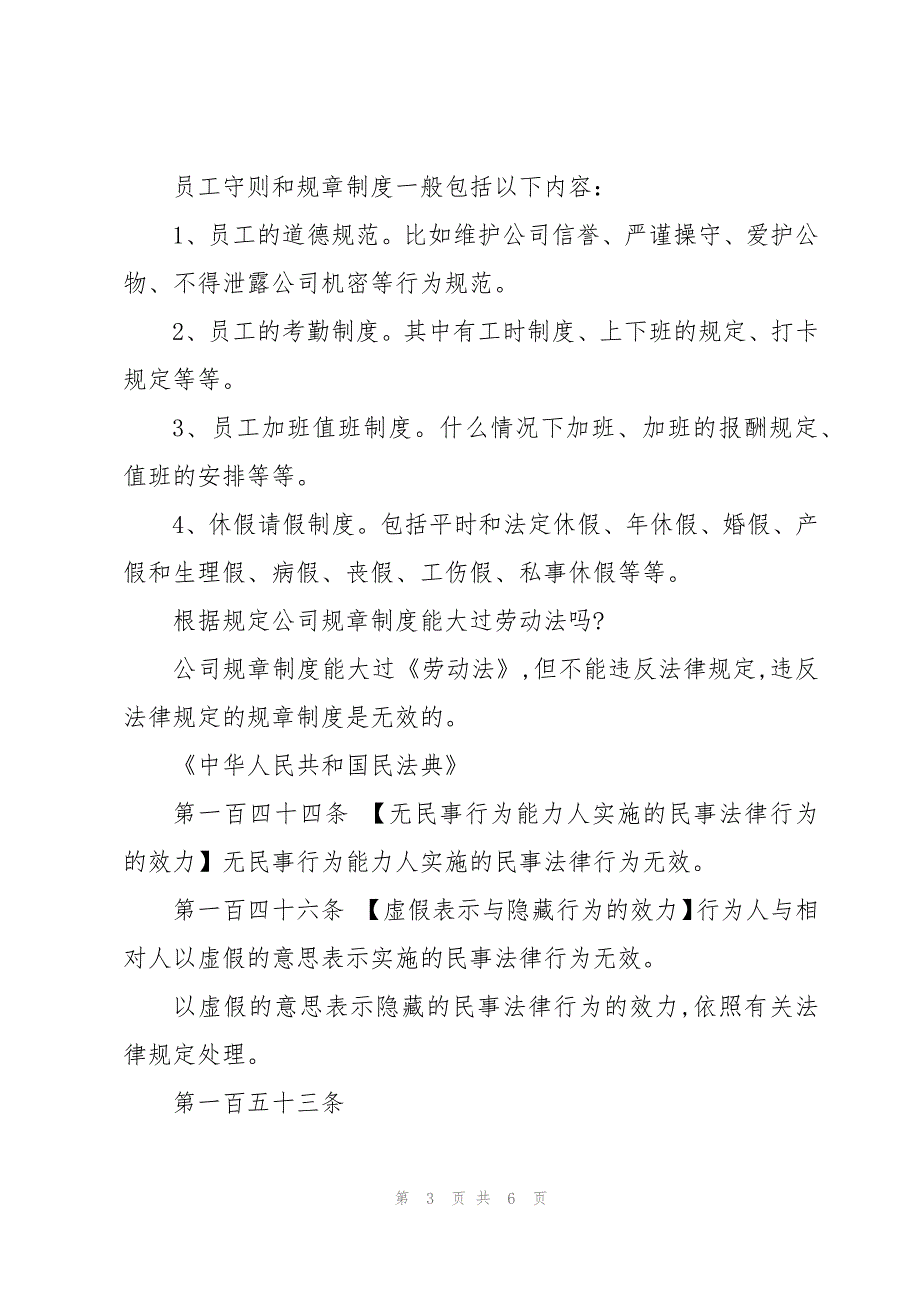 员工守则和规章制度一般包括以下内容：
1、员工的道德规范。比如维护公司信誉、严谨操守、爱护公
物、不得泄露公司机密等行为规范。
2、员工的考勤制度。其中有工时制度、上下班的规定、打卡
规定等等。
3、员工加班值班制度。什么情况下加班、加班的报酬规定、
值班的安排等等。
4、休假请假制度。包括平时和法定休假、年休假、婚假、产
假和生理假、病假、丧假、工伤假、私事休假等等。
根据规定公司规章制度能大过劳动法吗?
公司规章制度能大过《劳动法》,但不能违反法律规定,违反
法律规定的规章制度是无效的。
《中华人民共和国民法典》
第一百四十四条 【无民事行为能力人实施的民事法律行为
的效力】无民事行为能力人实施的民事法律行为无效。
第一百四十六条 【虚假表示与隐藏行为的效力】行为人与相
对人以虚假的意思表示实施的民事法律行为无效。
以虚假的意思表示隐藏的民事法律行为的效力,依照有关法
律规定处理。
第一百五十三条
第 3 页 共 6 页